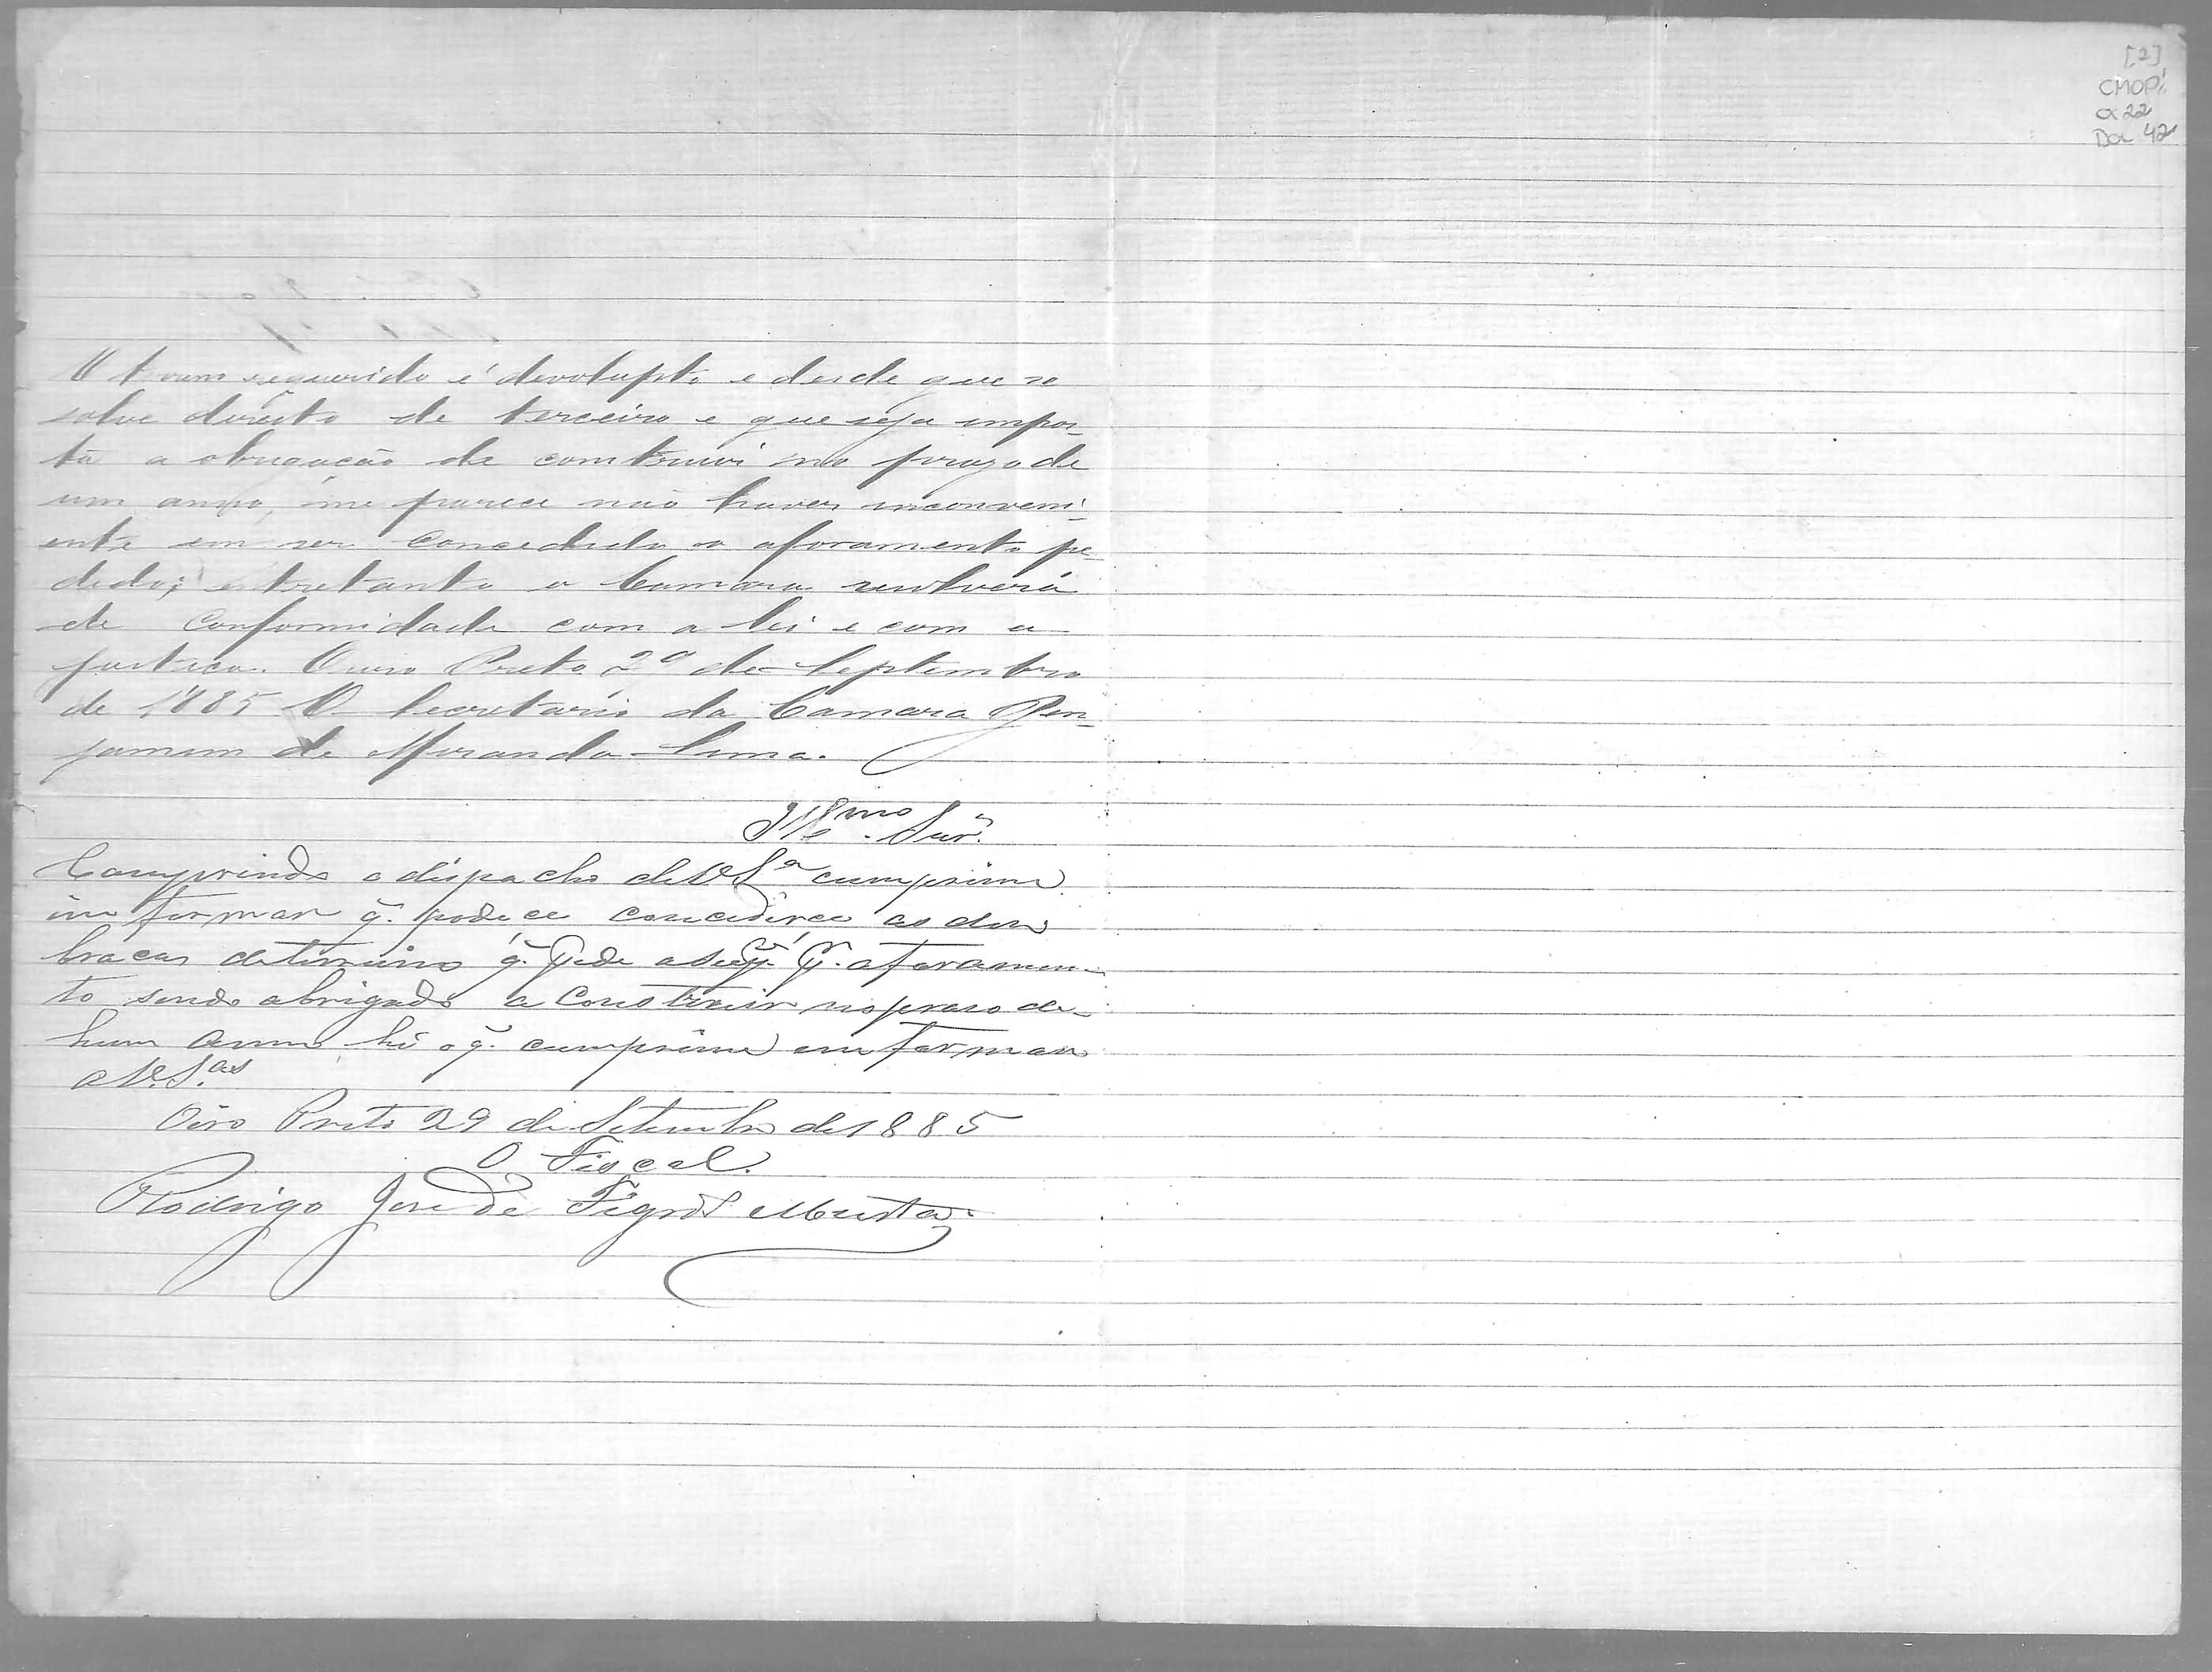 [2]
CMOP
cx 22
Doc 42
O terreno requerido é devolupto e desde que se
salve direito de terceiro e que seja impos-
ta a obrigação de construir no prazo de
um anno, me parece não haver inconveni-
ente em ser concedido o aforamento pe-
dido; entretanto a Camara resolverá
de conformidade com a lei e com a
justiça. Ouro Preto 29 de Septembro
de 1885 O Secretario da Camara Ben-
jamim de Miranda Lima.
Illmo. Snr.
Comprindo o dispacho de V Sª cumprime
in formar q̃. pode ce concederce as duas
bracas de terreino q̃. pede a Sup.e p.r aforamen-
to sendo abrigado a construir no praso de
hum anno hé o q̃. cumprime emformar
a V. S.as
Oiro Preto 29 de Setembro de 1885
O Fiscal.
Rodrigo José de Figrdo Murta